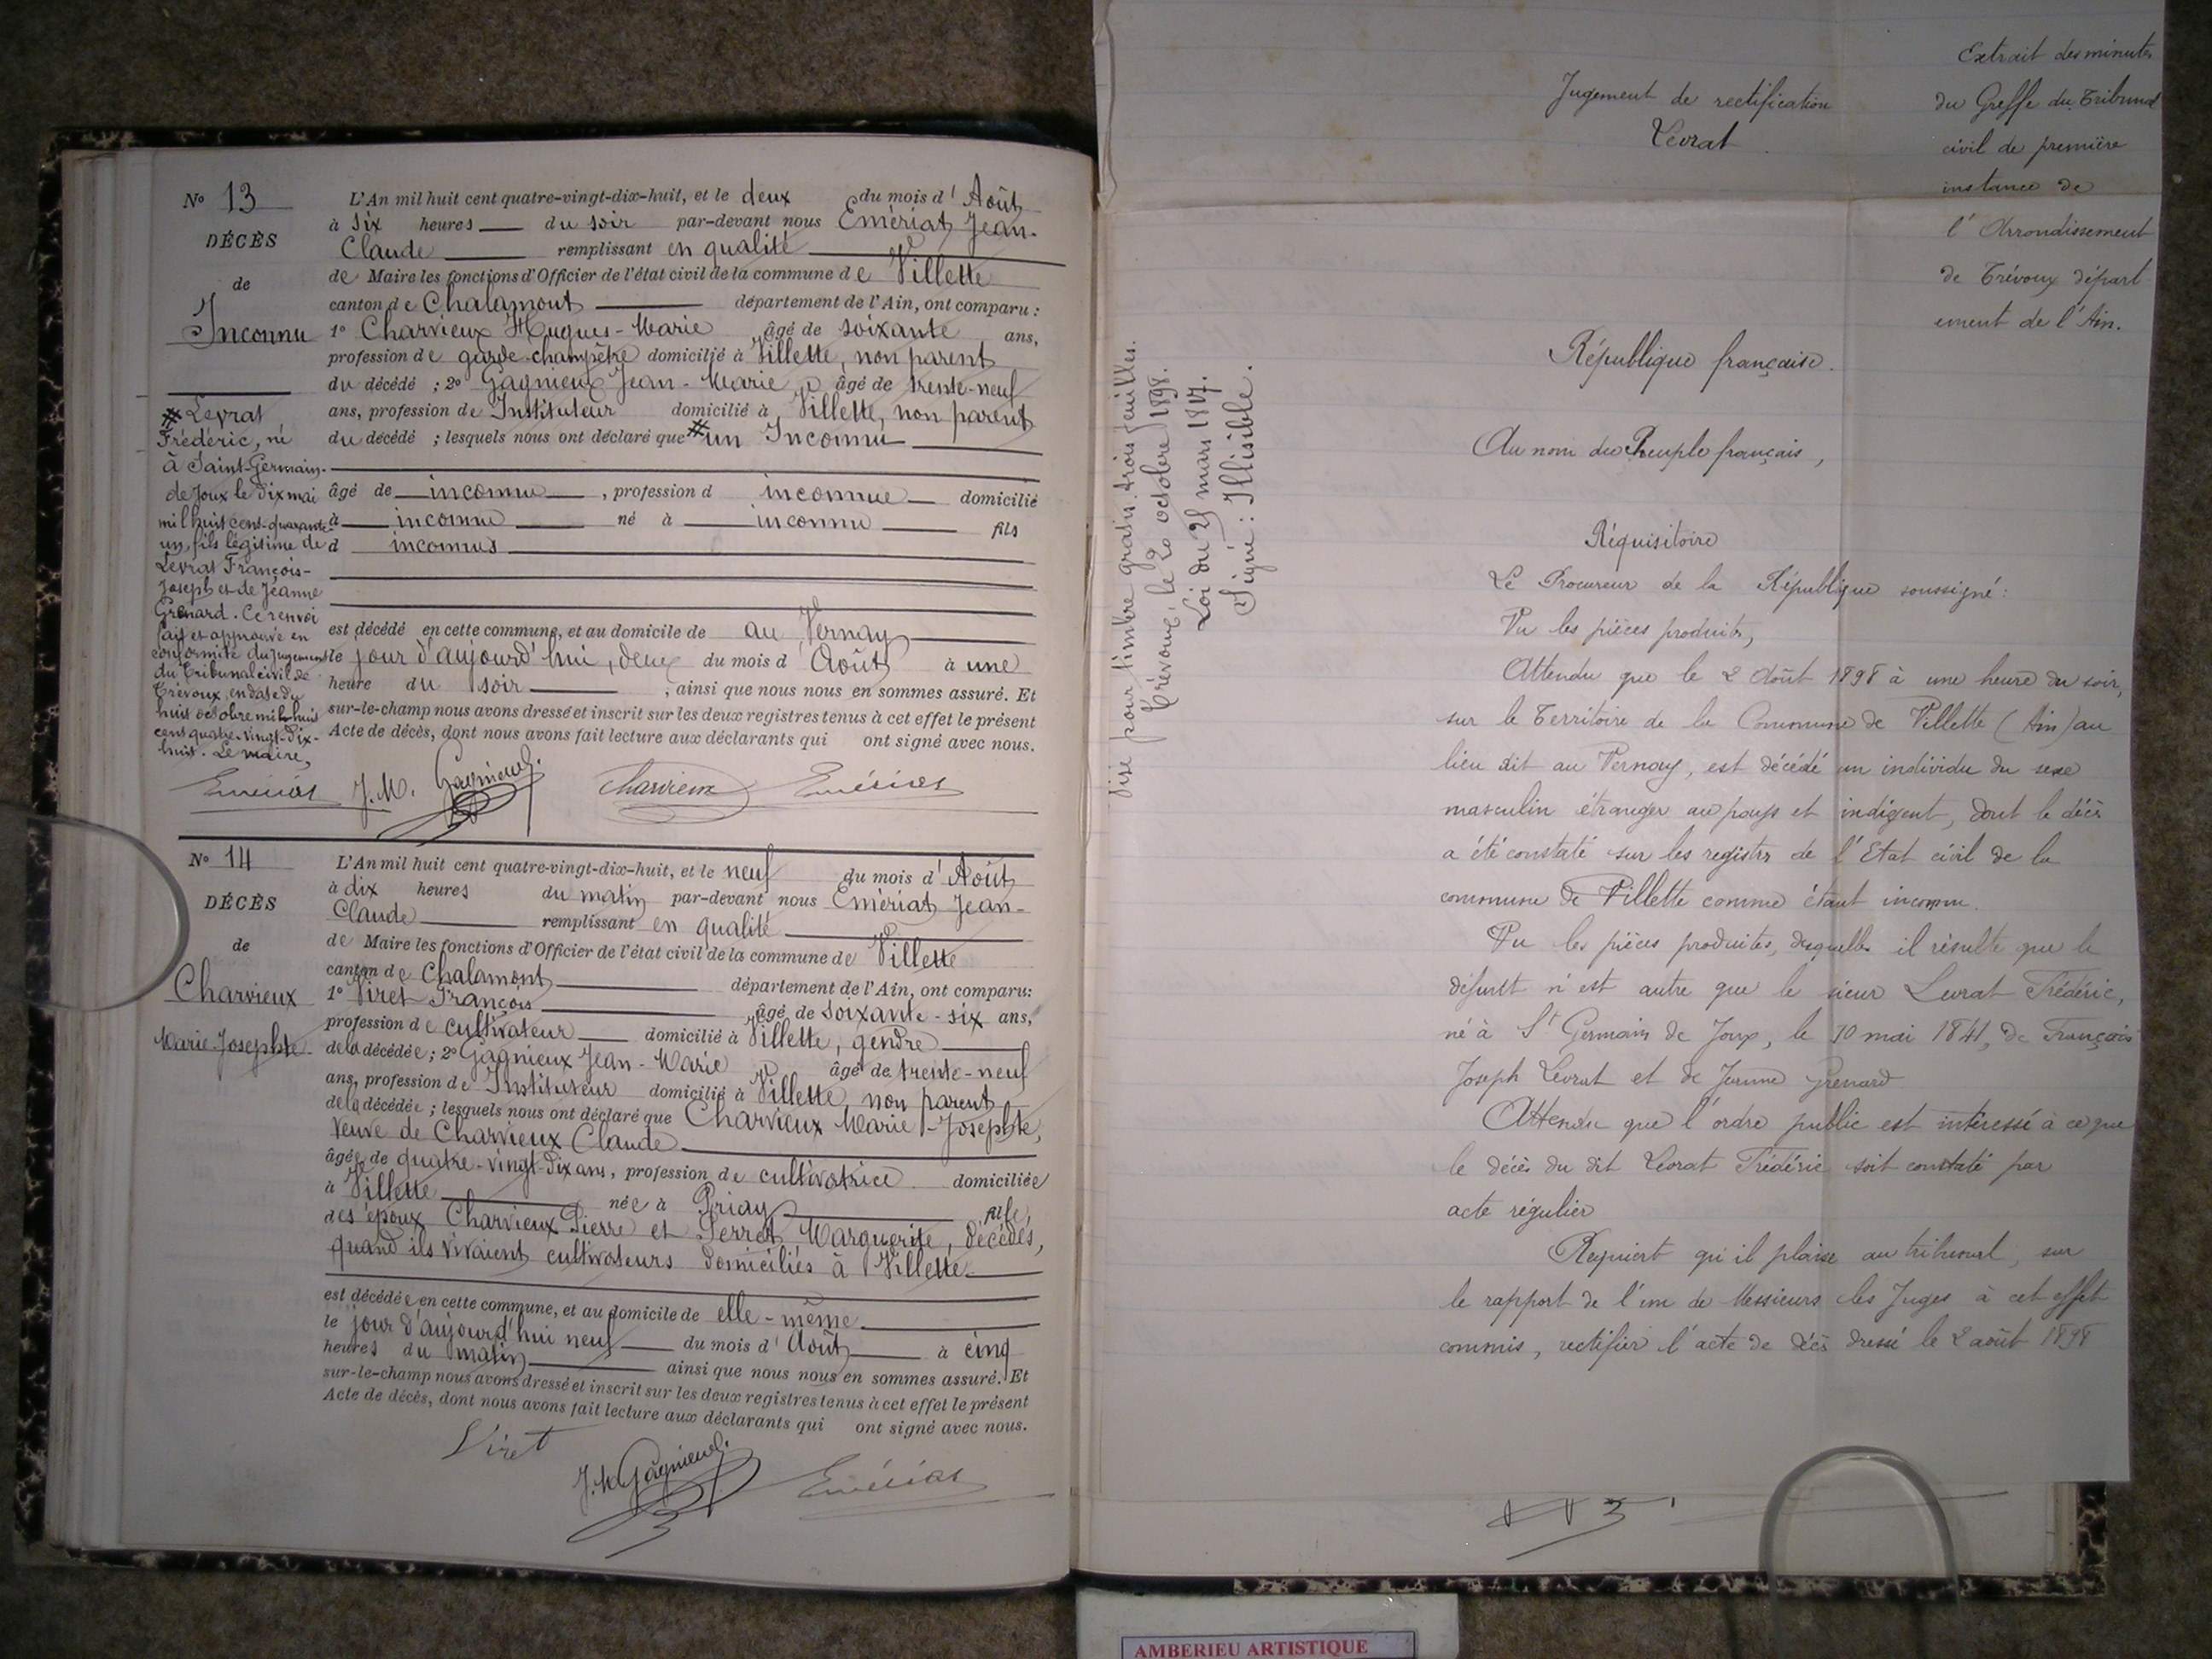 N° 13
DÉCÈS
de
Inconnu
L'An mil huit cent quatre-vingt-dix-huit, et le deux du mois d'Août
à six heures du soir par-devant nous Emériat Jean-
Claude remplissant en qualité
de Maire les fonctions d'Officier de l'état civil de la commune de Villette
canton de Chalamont département de l'Ain, ont comparu :
1° Charvieux Hugues-Marie âgé de soixante ans,
profession de garde-champêtre domicilié à Villette, non parent
du décédé ; 2° Gagnieux Jean-Marie, âgé de trente-neuf
ans, profession de Instituteur domicilié à Villette, non parent
du décédé ; lesquels nous ont déclaré que # un Inconnu
âgé de inconnu, profession d inconnue domicilié
à inconnu né à inconnu fils
d inconnus
est décédé en cette commune, et au domicile de au Vernay
le jour d'aujourd'hui, deux du mois d'Août à une
heure du soir ; ainsi que nous nous en sommes assuré. Et
sur-le-champ nous avons dressé et inscrit sur les deux registres tenus à cet effet le présent
Acte de décès, dont nous avons fait lecture aux déclarants qui ont signé avec nous.
# Levrat
Frédéric, né
à Saint-Germain-
de Joux le dix mai
mil huit cent-quarante-
un, fils légitime de
Levrat François-
Joseph et de Jeanne
Grenard. Ce renvoi
fait et approuvé en
conformité du jugement
du Tribunal civil de
Trévoux, en date du
huit octobre mil huit
cent quatre-vingt-dix-
huit. Le maire,
Emériat J.M. Gagnieux Charvieux Emériat
N° 14
DÉCÈS
de
Charvieux
Marie-Josephte
L'An mil huit cent quatre-vingt-dix-huit, et le neuf du mois d'Août
à dix heures du matin par-devant nous Emériat Jean-
Claude remplissant en qualité
de Maire les fonctions d'Officier de l'état civil de la commune de Villette
canton de Chalamont département de l'Ain, ont comparu :
1° Viret François âgé de soixante-six ans,
profession de cultivateur domicilié à Villette, gendre
de la décédée ; 2° Gagnieux Jean-Marie âgé de trente-neuf
ans, profession de Instituteur domicilié à Villette, non parent
de la décédée ; lesquels nous ont déclaré que Charvieux Marie-Josephte,
veuve de Charvieux Claude
âgée de quatre-vingt-dix ans, profession de cultivatrice domiciliée
à Villette née à Priay fille
des époux Charvieux Pierre et Perret Marguerite, décédés,
quand ils vivaient cultivateurs domiciliés à Villette.
est décédée en cette commune, et au domicile de elle-même
le jour d'aujourd'hui neuf du mois d'Août à cinq
heures du matin ainsi que nous nous en sommes assuré. Et
sur-le-champ nous avons dressé et inscrit sur les deux registres tenus à cet effet le présent
Acte de décès, dont nous avons fait lecture aux déclarants qui ont signé avec nous.
Viret
J.M. Gagnieux Emériat
Extrait des minutes
du Greffe du Tribunal
civil de première
instance de
l'Arrondissement
de Trévoux départ
ement de l'Ain.
Jugement de rectification
Levrat
visé pour timbre gratis. trois feuilles.
Trévoux, le 20 octobre 1898.
Loi du 25 mars 1817.
Signé : Illisible.
République française.
Au nom du Peuple français,
Réquisitoire
Le Procureur de la République soussigné :
Vu les pièces produites,
Attendu que le 2 Août 1898 à une heure du soir,
sur le Territoire de la Commune de Villette (Ain) au
lieu dit au Vernay, est décédé un individu du sexe
masculin étranger au pays et indigent, dont le décès
a été constaté sur les registres de l'Etat civil de la
commune de Villette comme étant inconnu.
Vu les pièces produites, desquelles il résulte que le
défunt n'est autre que le sieur Levrat Frédéric,
né à St Germain de Joux, le 10 mai 1841, de François
Joseph Levrat et de Jeanne Grenard
Attendu que l'ordre public est intéressé à ce que
le décès du dit Levrat Frédéric soit constaté par
acte régulier
Requiert qu'il plaise au tribunal, sur
le rapport de l'un de Messieurs les Juges à cet effet
commis, rectifier l'acte de décès dressé le 2 août 1898
AMBERIEU ARTISTIQUE